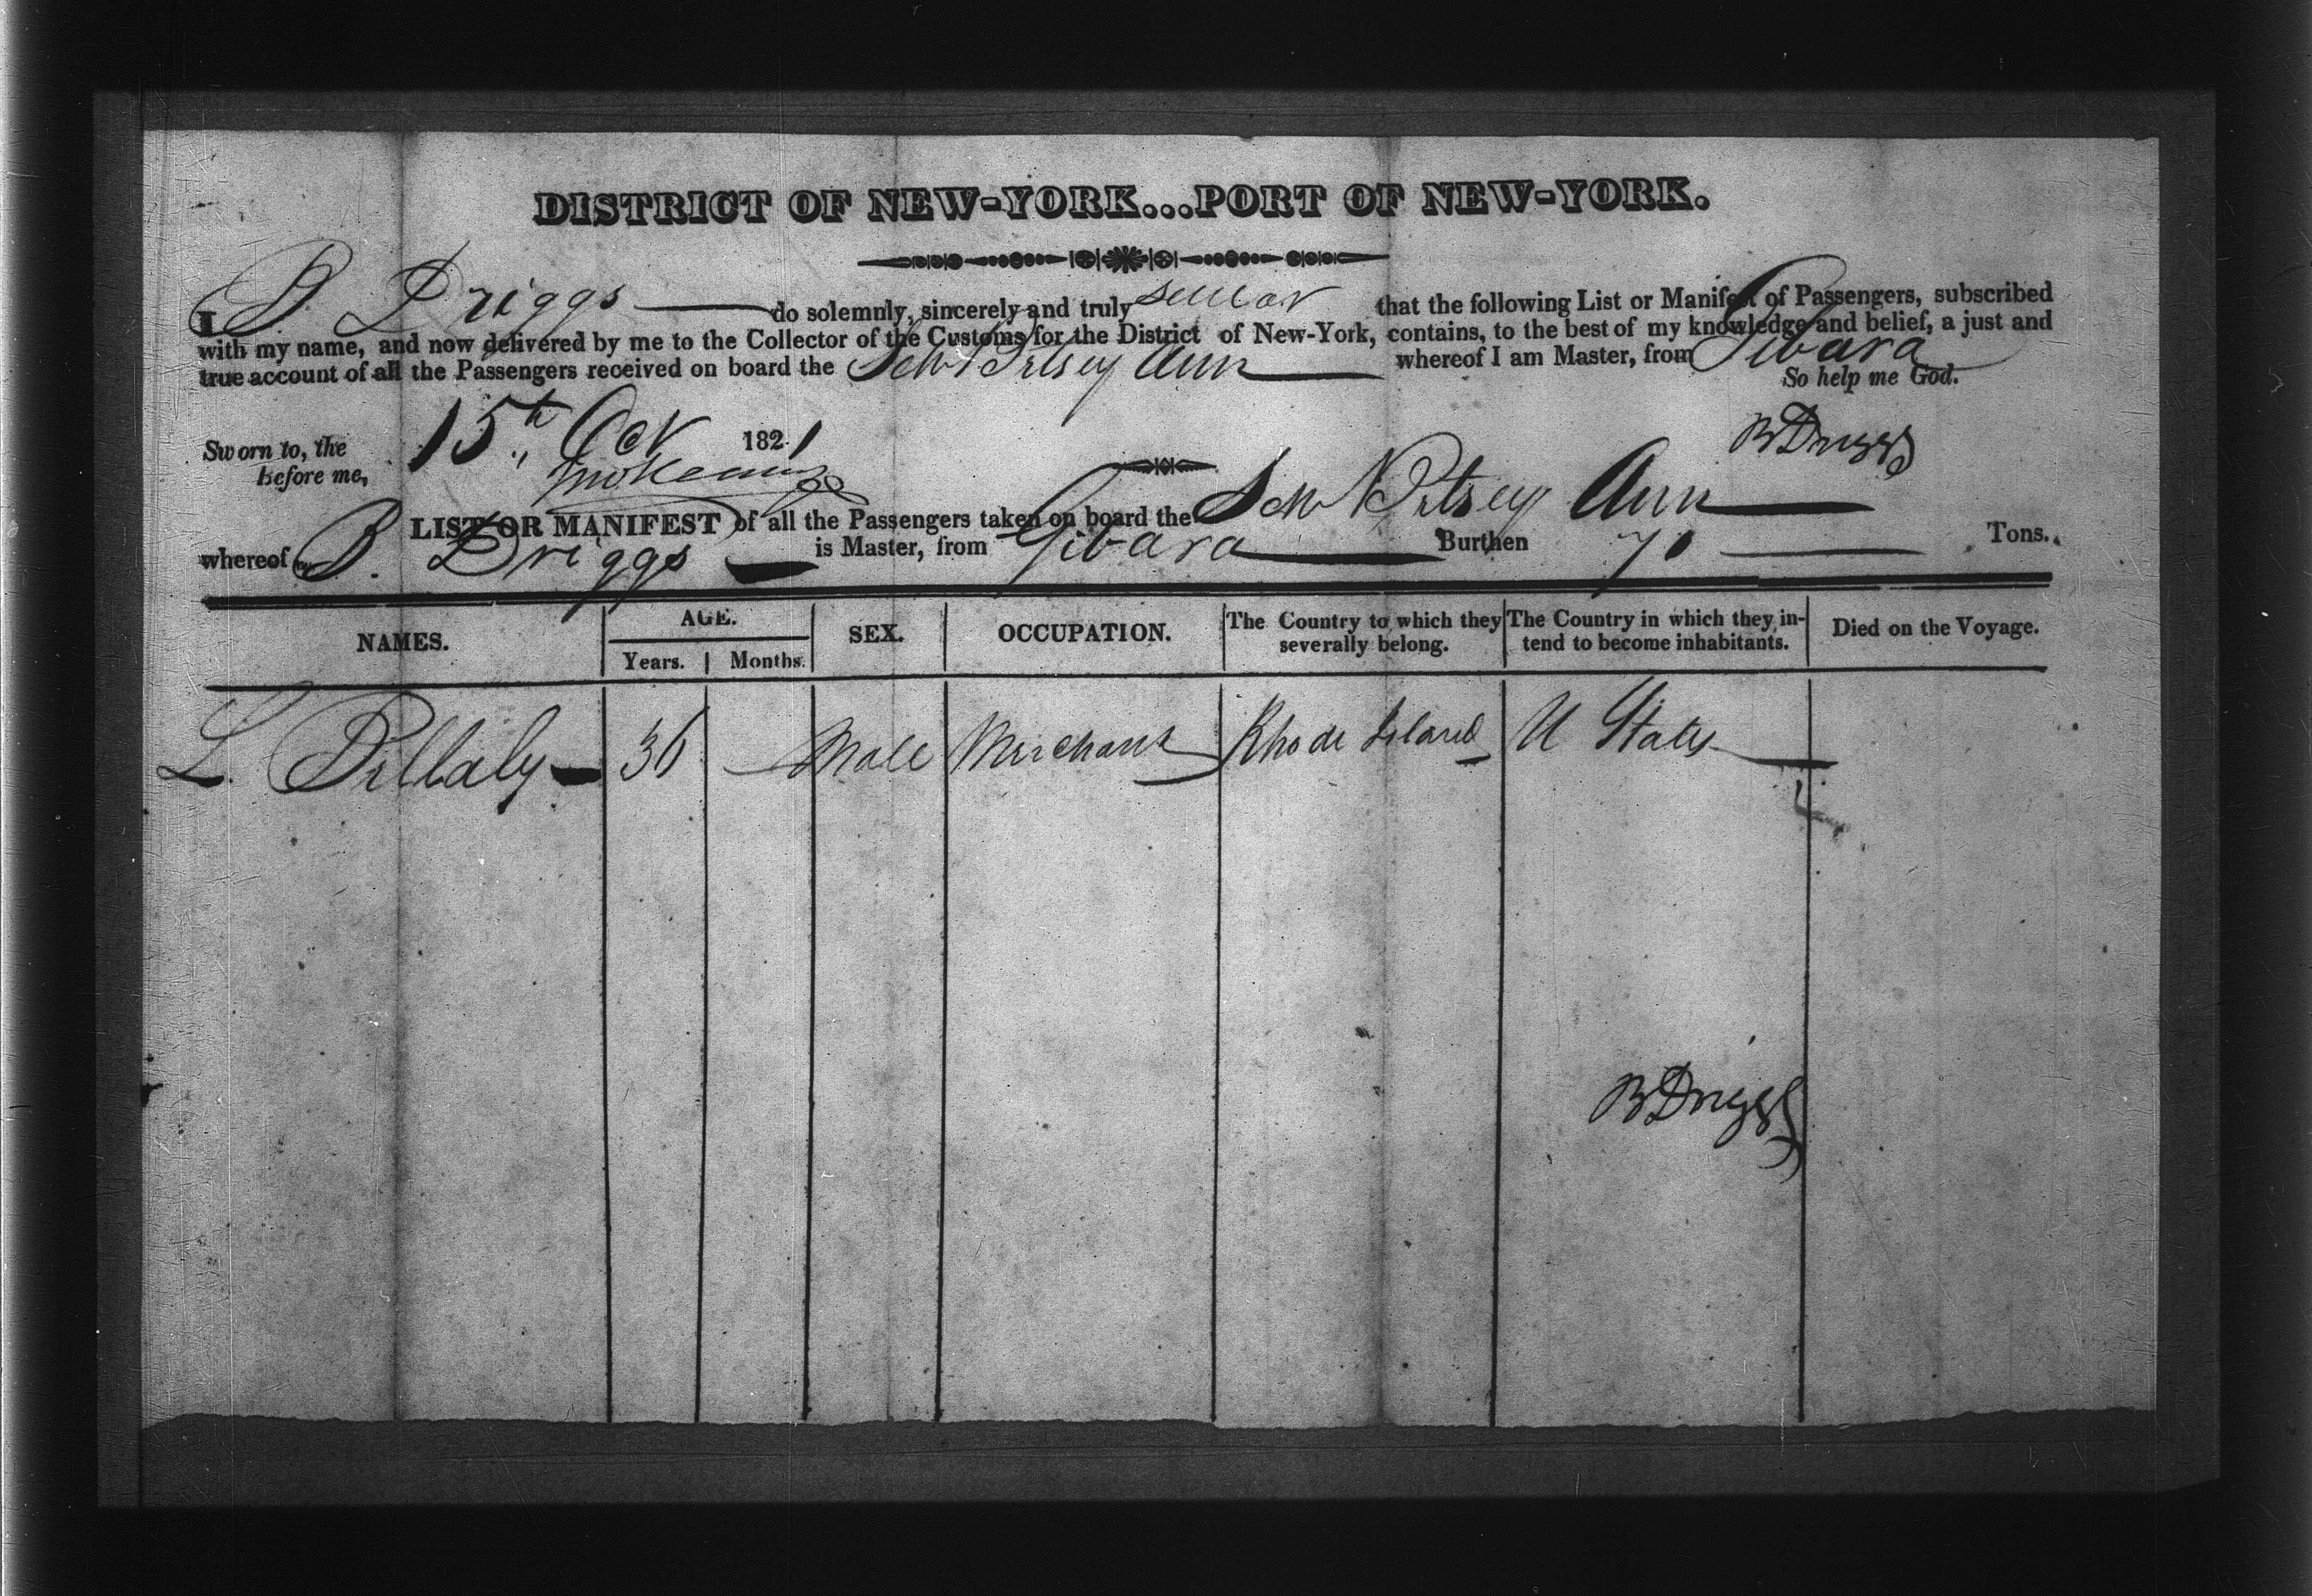 DISTRICT OF NEW-YORK...PORT OF NEW-YORK.
I B. Driggs do solemnly, sincerely and truly swear that the following List or Manifest of Passengers, subscribed
with my name, and now delivered by me to the Collector of the Customs for the District of New-York, contains, to the best of my knowledge and belief, a just and
true account of all the Passengers received on board the Schr Betsey Ann whereof I am Master, from Gibara
So help me God.
Sworn to, the 15th Oct 1821
B Driggs
Before me,
LIST OR MANIFEST of all the Passengers taken on board the Schr Betsey Ann
whereof B. Driggs is Master, from Gibara Burthen 71 Tons.
NAMES. AGE. Years. Months. SEX. OCCUPATION. The Country to which they severally belong. The Country in which they intend to become inhabitants. Died on the Voyage.
L. 36 Male Merchant Rhode Island U States
B Driggs